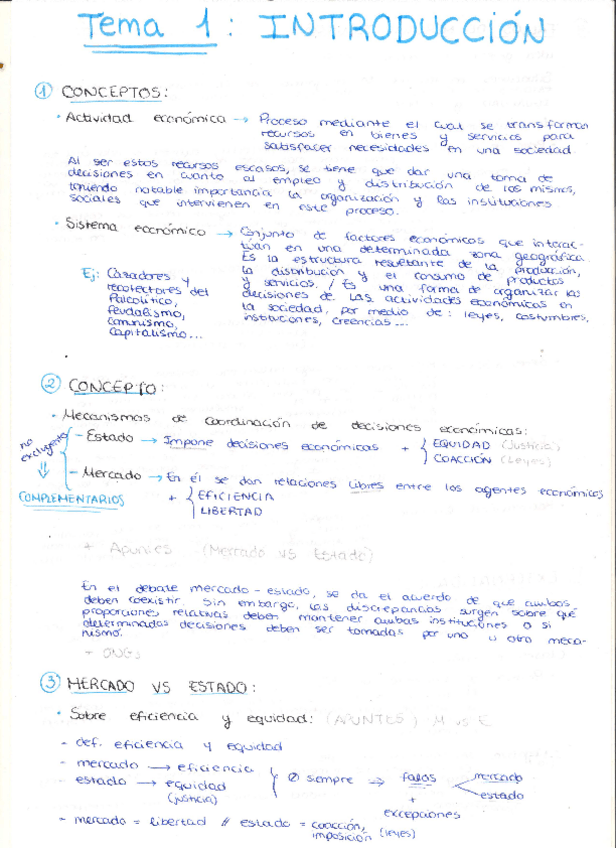 Tema 1: INTRODUCCIÓN
① CONCEPTOS:
· Actividad económica → Proceso mediante el cual se transforman
recursos en bienes y servicios para
satisfacer necesidades en una sociedad.
Al ser estos recursos escasos, se tiene que dar una toma de
decisiones en cuanto al empleo y distribución de los mismos,
teniendo notable importancia la organización y las instituciones
sociales que intervienen en este proceso.
· Sistema económico → Conjunto de factores económicos que interac-
túan en una determinada zona geográfica.
Es la estructura resultante de la producción,
la distribución y el consumo de productos
y servicios. / Es una forma de organizar las
decisiones de las actividades económicas en
la sociedad, por medio de: leyes, costumbres,
instituciones, creencias...
Ej: Cazadores y
recolectores del
Paleolítico,
feudalismo,
comunismo,
capitalismo...
② CONCEPTO:
· Mecanismos de coordinación de decisiones económicas:
no excluyente
⇓
COMPLEMENTARIOS
- Estado → Impone decisiones económicas + { EQUIDAD (Justicia)
COACCIÓN (Leyes)
- Mercado → En él se dan relaciones libres entre los agentes económicos
+ { EFICIENCIA
LIBERTAD
+ Apuntes (Mercado vs Estado)
En el debate mercado - estado, se da el acuerdo de que ambos
deben coexistir. Sin embargo, las discrepancias surgen sobre qué
proporciones relativas deben mantener ambas instituciones o si
determinadas decisiones deben ser tomadas por uno u otro meca-
nismo.
- ONGs
③ MERCADO VS ESTADO:
· Sobre eficiencia y equidad: (APUNTES) M vs E
- def. eficiencia y equidad
- mercado → eficiencia
- estado → equidad
(justicia)
∅ siempre → fallos
mercado
estado
+
excepciones
- mercado = libertad // estado = coacción,
imposición (leyes)